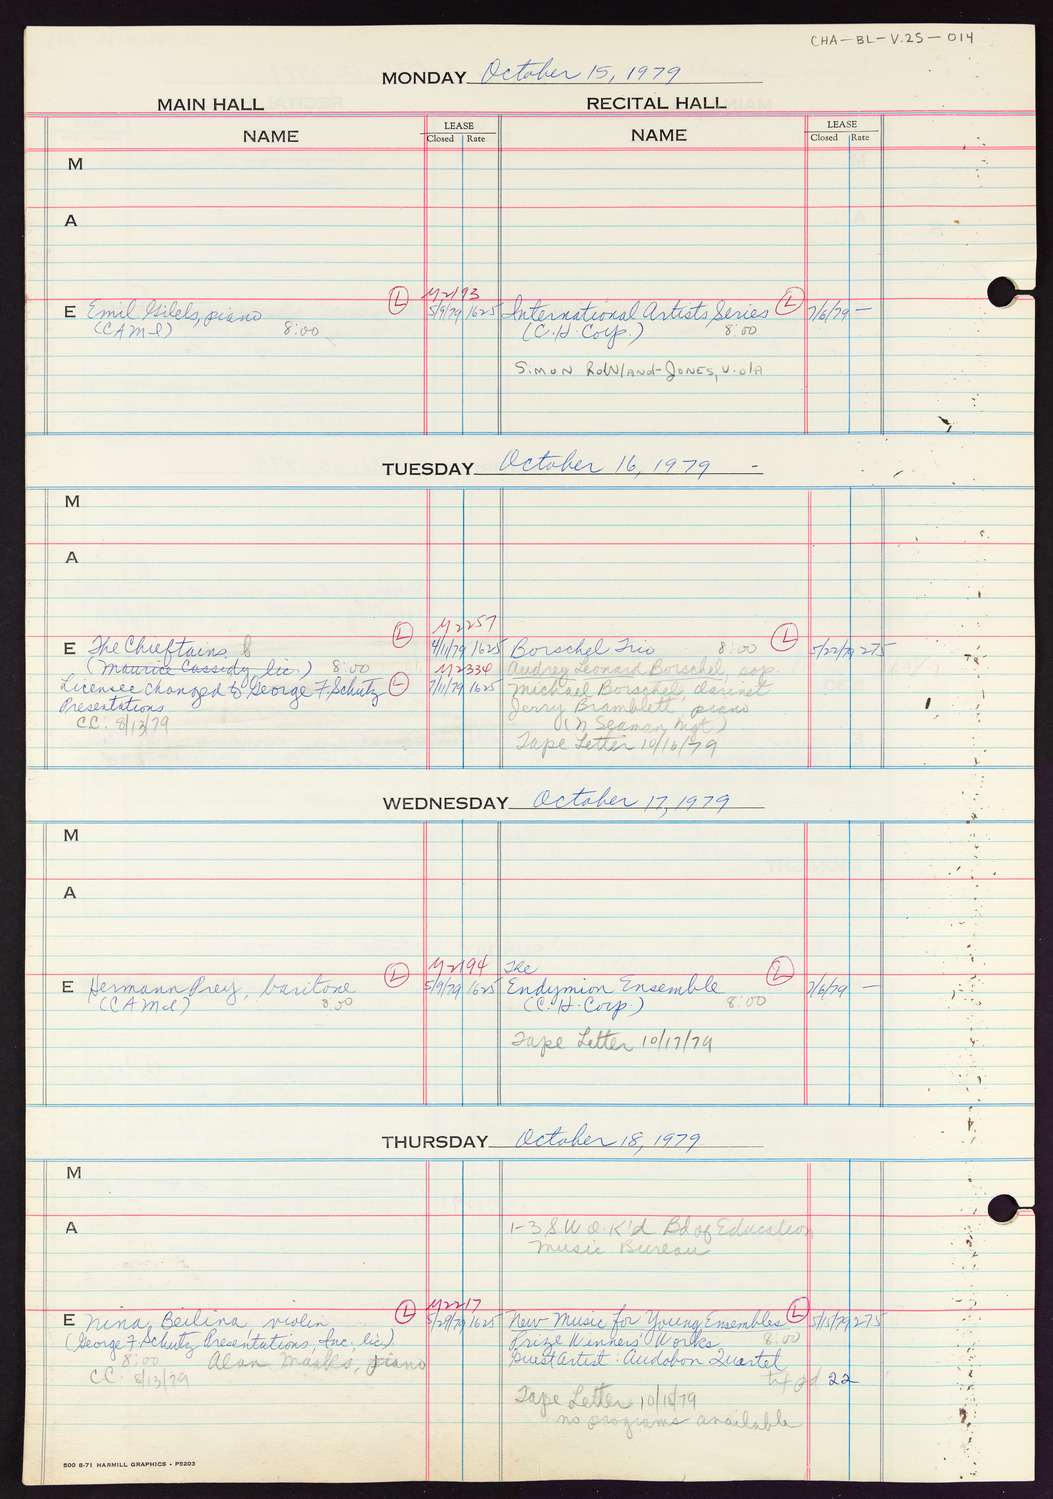 CHA-BL-V.25-014
MONDAY October 15, 1979
MAIN HALL RECITAL HALL
NAME LEASE Closed Rate NAME LEASE Closed Rate
M
A
M2193
E Emil Gilels, piano L 5/9/79 1625 International Artists Series L 7/6/79 —
(CAMI) 8:00 (C.H. Corp.) 8:00
Simon Rowland-Jones, viola
TUESDAY October 16, 1979 -
M
A
M2257
E The Chieftains L 4/11/79 1625 Borschel Trio 8:00 L 5/22/79 275
(Maurice Cassidy, lic.) 8:00 M2334 Audrey Leonard Borschel, sop.
Licensee changed to George F. Schutz L 7/11/79 1625 Michael Borschel, clarinet
Presentations Jerry Bramblett, piano
CC: 8/13/79 (N Seaman Mgt)
Tape Letter 10/16/79
WEDNESDAY October 17, 1979
M
A
M2194 The
E Hermann Prey, baritone L 5/9/79 1625 Endymion Ensemble L 7/6/79 —
(CAMI) 8:00 (C.H. Corp.) 8:00
Tape Letter 10/17/79
THURSDAY October 18, 1979
M
A 1-3 SW O.K'd Bd of Education
Music Bureau
M2217
E Nina Beilina, violin L 5/29/79 1625 New Music for Young Ensembles L 5/15/79 275
(George F. Schutz Presentations, Inc., lic) Prize Winners' Works 8:00
8:00 Alan Marks, piano Guest Artist: Audobon Quartet
CC: 8/13/79 22
Tape Letter 10/18/79
no programs available
500 8-71 HARMILL GRAPHICS - P5203